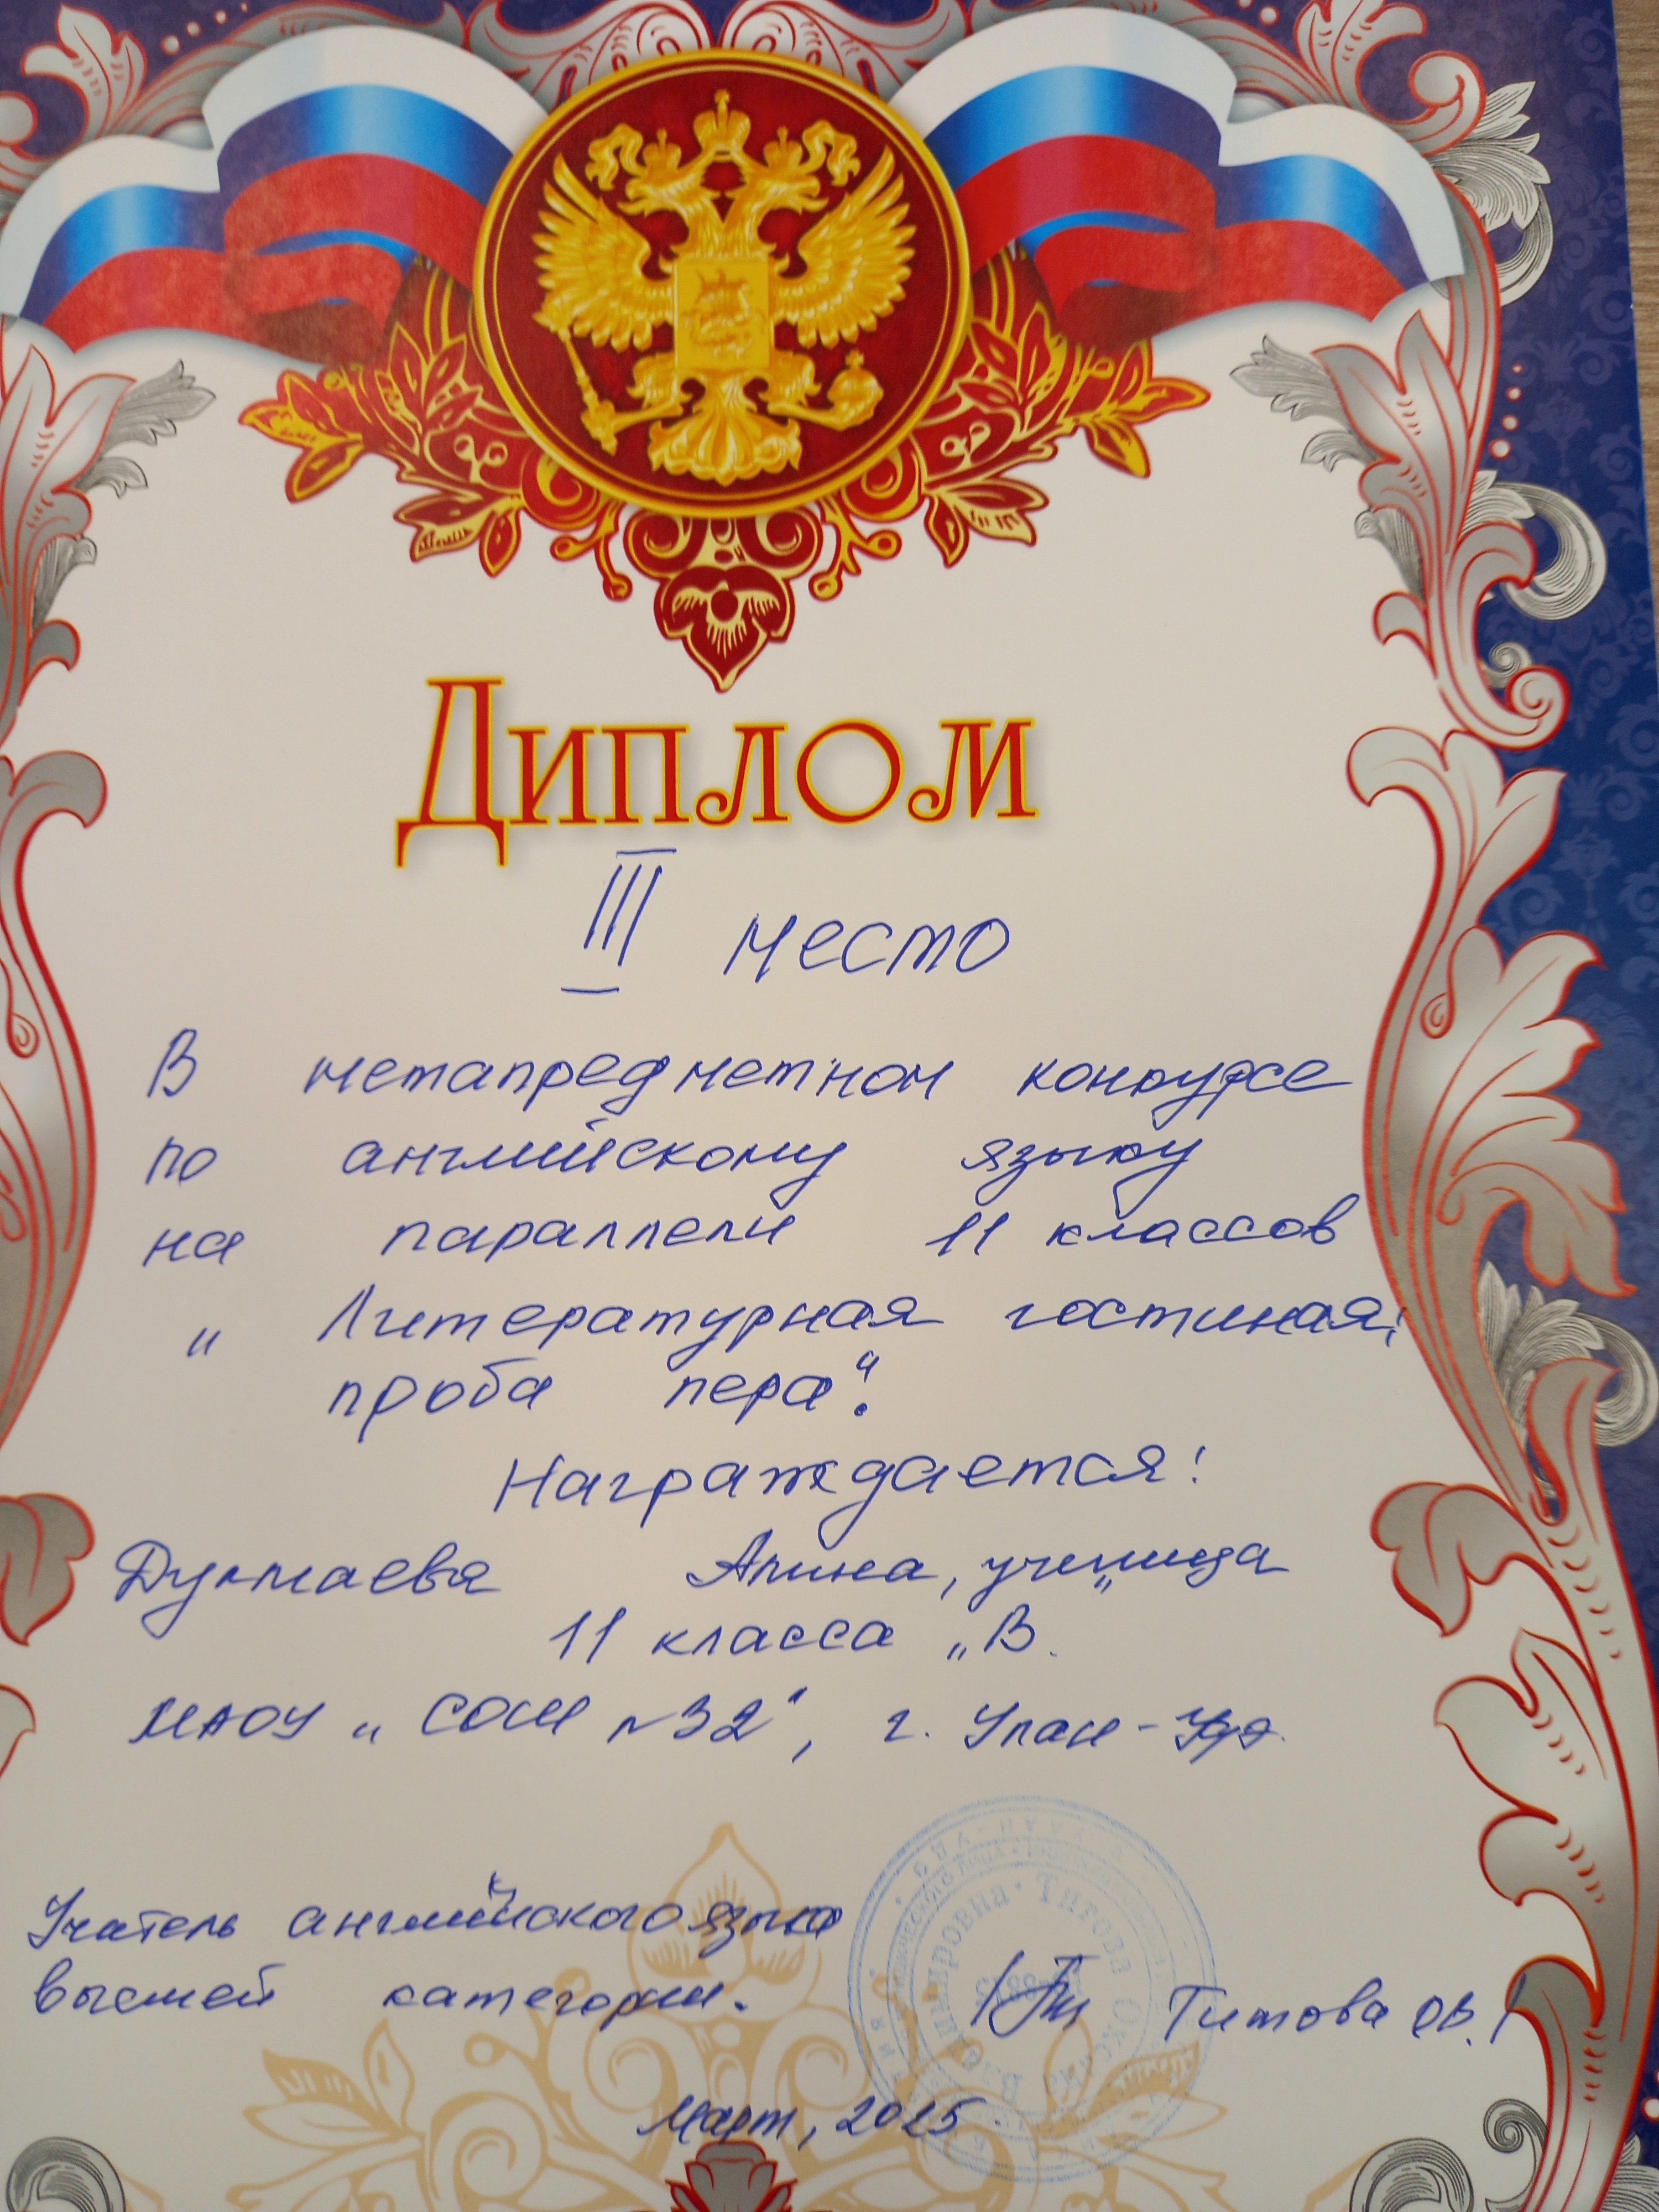 Диплом
III место
В метапредметном конкурсе
по английскому языку
на параллели 11 классов
„Литературная гостиная:
проба пера“.
Награждается:
Алина, ученица
11 класса „В.
МАОУ „СОШ №32“, г. Улан-Удэ.
Учитель английского языка
высшей категории.
/ Титова О.В./
Март, 2025
Владимировна • Титова Оксана